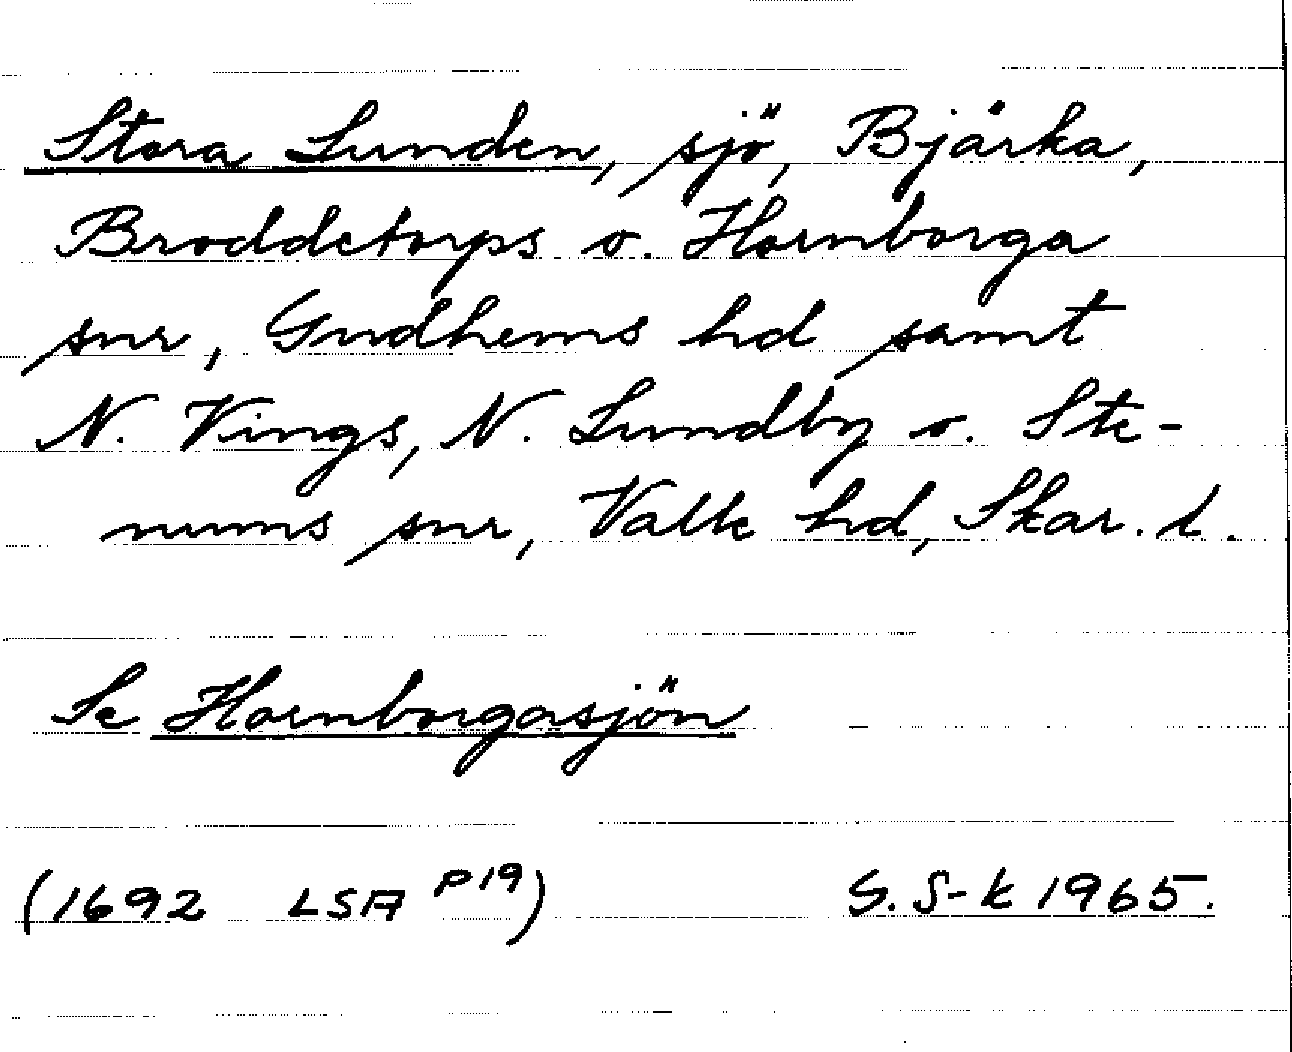 Stora Lunden, sjö, Bjärka,
Broddetorps o. Hornborga
snr, Gudhems hd samt
N. Vings, N. Lundby o. Ste-
nums snr, Valle hd, Skar. l.
Se Hornborgasjön
(1692 LSA P19) S. S-k 1965.